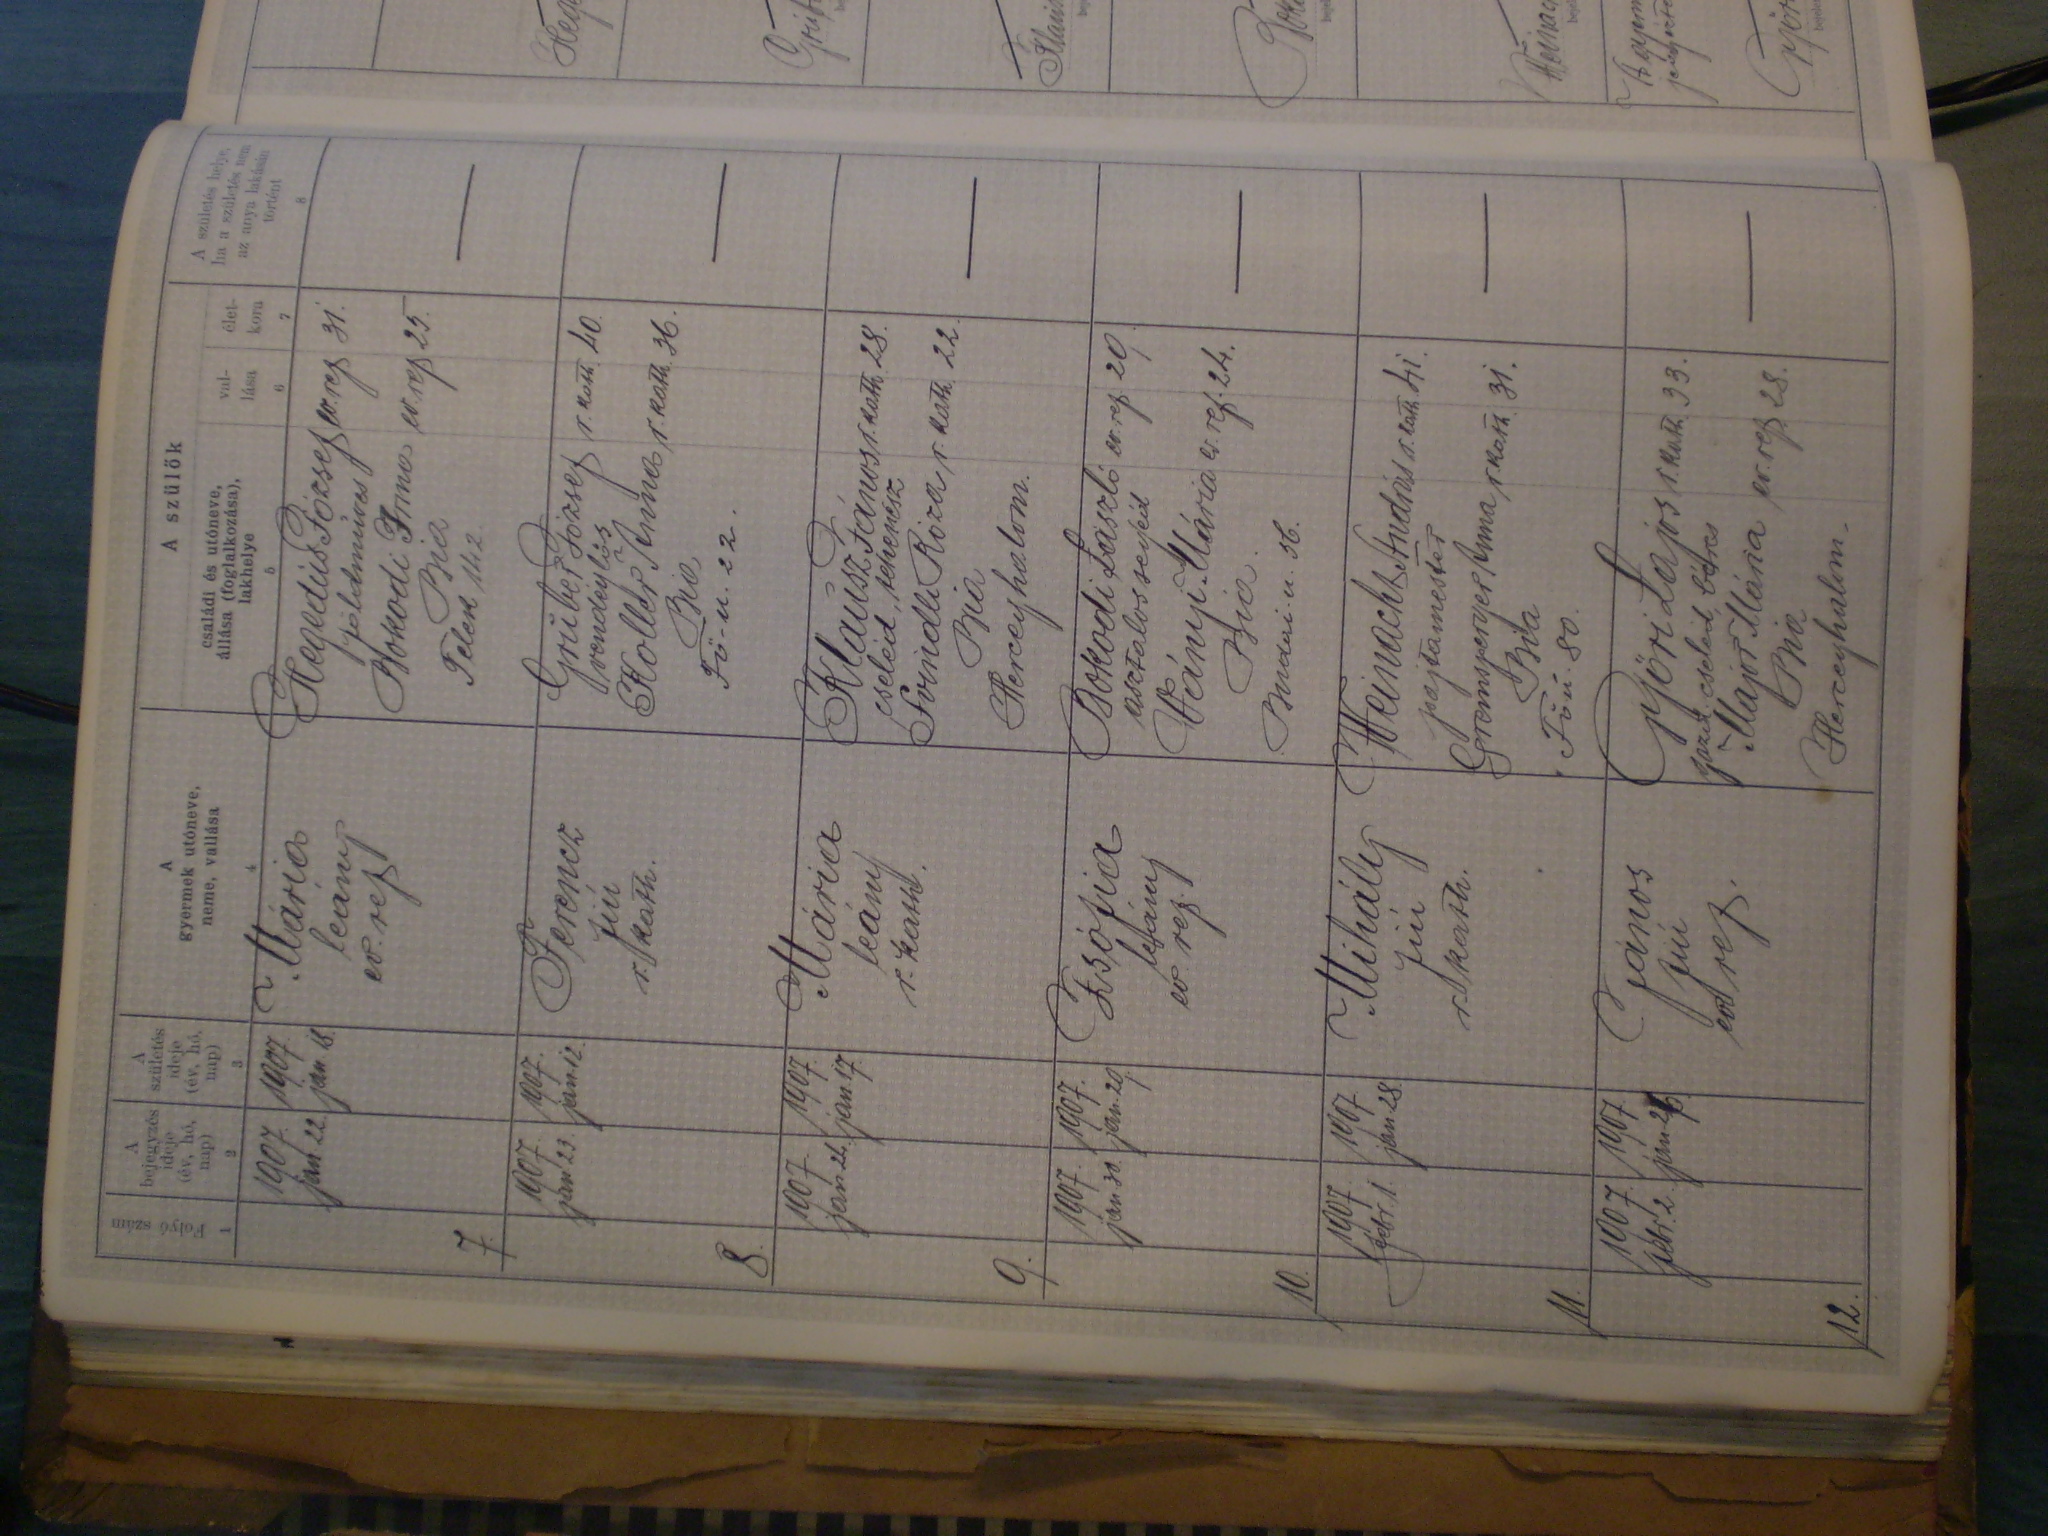 A bejegyzés ideje (év, hó, nap)
A születés ideje (év, hó, nap)
A gyermek utóneve, neme, vallása
A szülők
családi és utóneve, állása (foglalkozása), lakhelye
vallása
életkora
A születés helye, ha a születés nem az anya lakásán történt
Folyó szám
1
2
3
4
5
6
7
8
7.
1907. jan. 22.
1907. jan. 18.
Mária
leány
ev. ref.
Hegedüs József ev. ref. 31.
földmüves
Bokodi Irma ev. ref. 25.
Bia
Telek 142.
—
8.
1907. jan. 23.
1907. jan. 12.
Ferencz
fiú
r. kath.
József r. kath. 40.
vendeglős
Koller Anna r. kath. 36.
Bia
Fő-u. 22.
—
9.
1907.
1907. jan. 17.
Mária
leány
r. kath.
Klausz János r. kath. 28.
cseléd, tehenész
Róza r. kath. 22.
Bia
Herceghalom.
—
10.
1907. jan. 30.
1907. jan. 20.
Zsófia
leány
ev. ref.
Bokodi László ev. ref. 29.
asztalos segéd
Mária ev. ref. 24.
Bia.
Budai-u. 56.
—
11.
1907. febr. 1.
1907. jan. 28.
Mihály
fiú
r. kath.
András r. kath. 41.
Anna r. kath. 31.
Bia
Fő u. 80.
—
12.
1907. febr. 2.
1907.
János
fiú
ev. ref.
Györi Lajos r. kath. 33.
cseléd,
Major Mária ev. ref. 28.
Bia
Herceghalom.
—